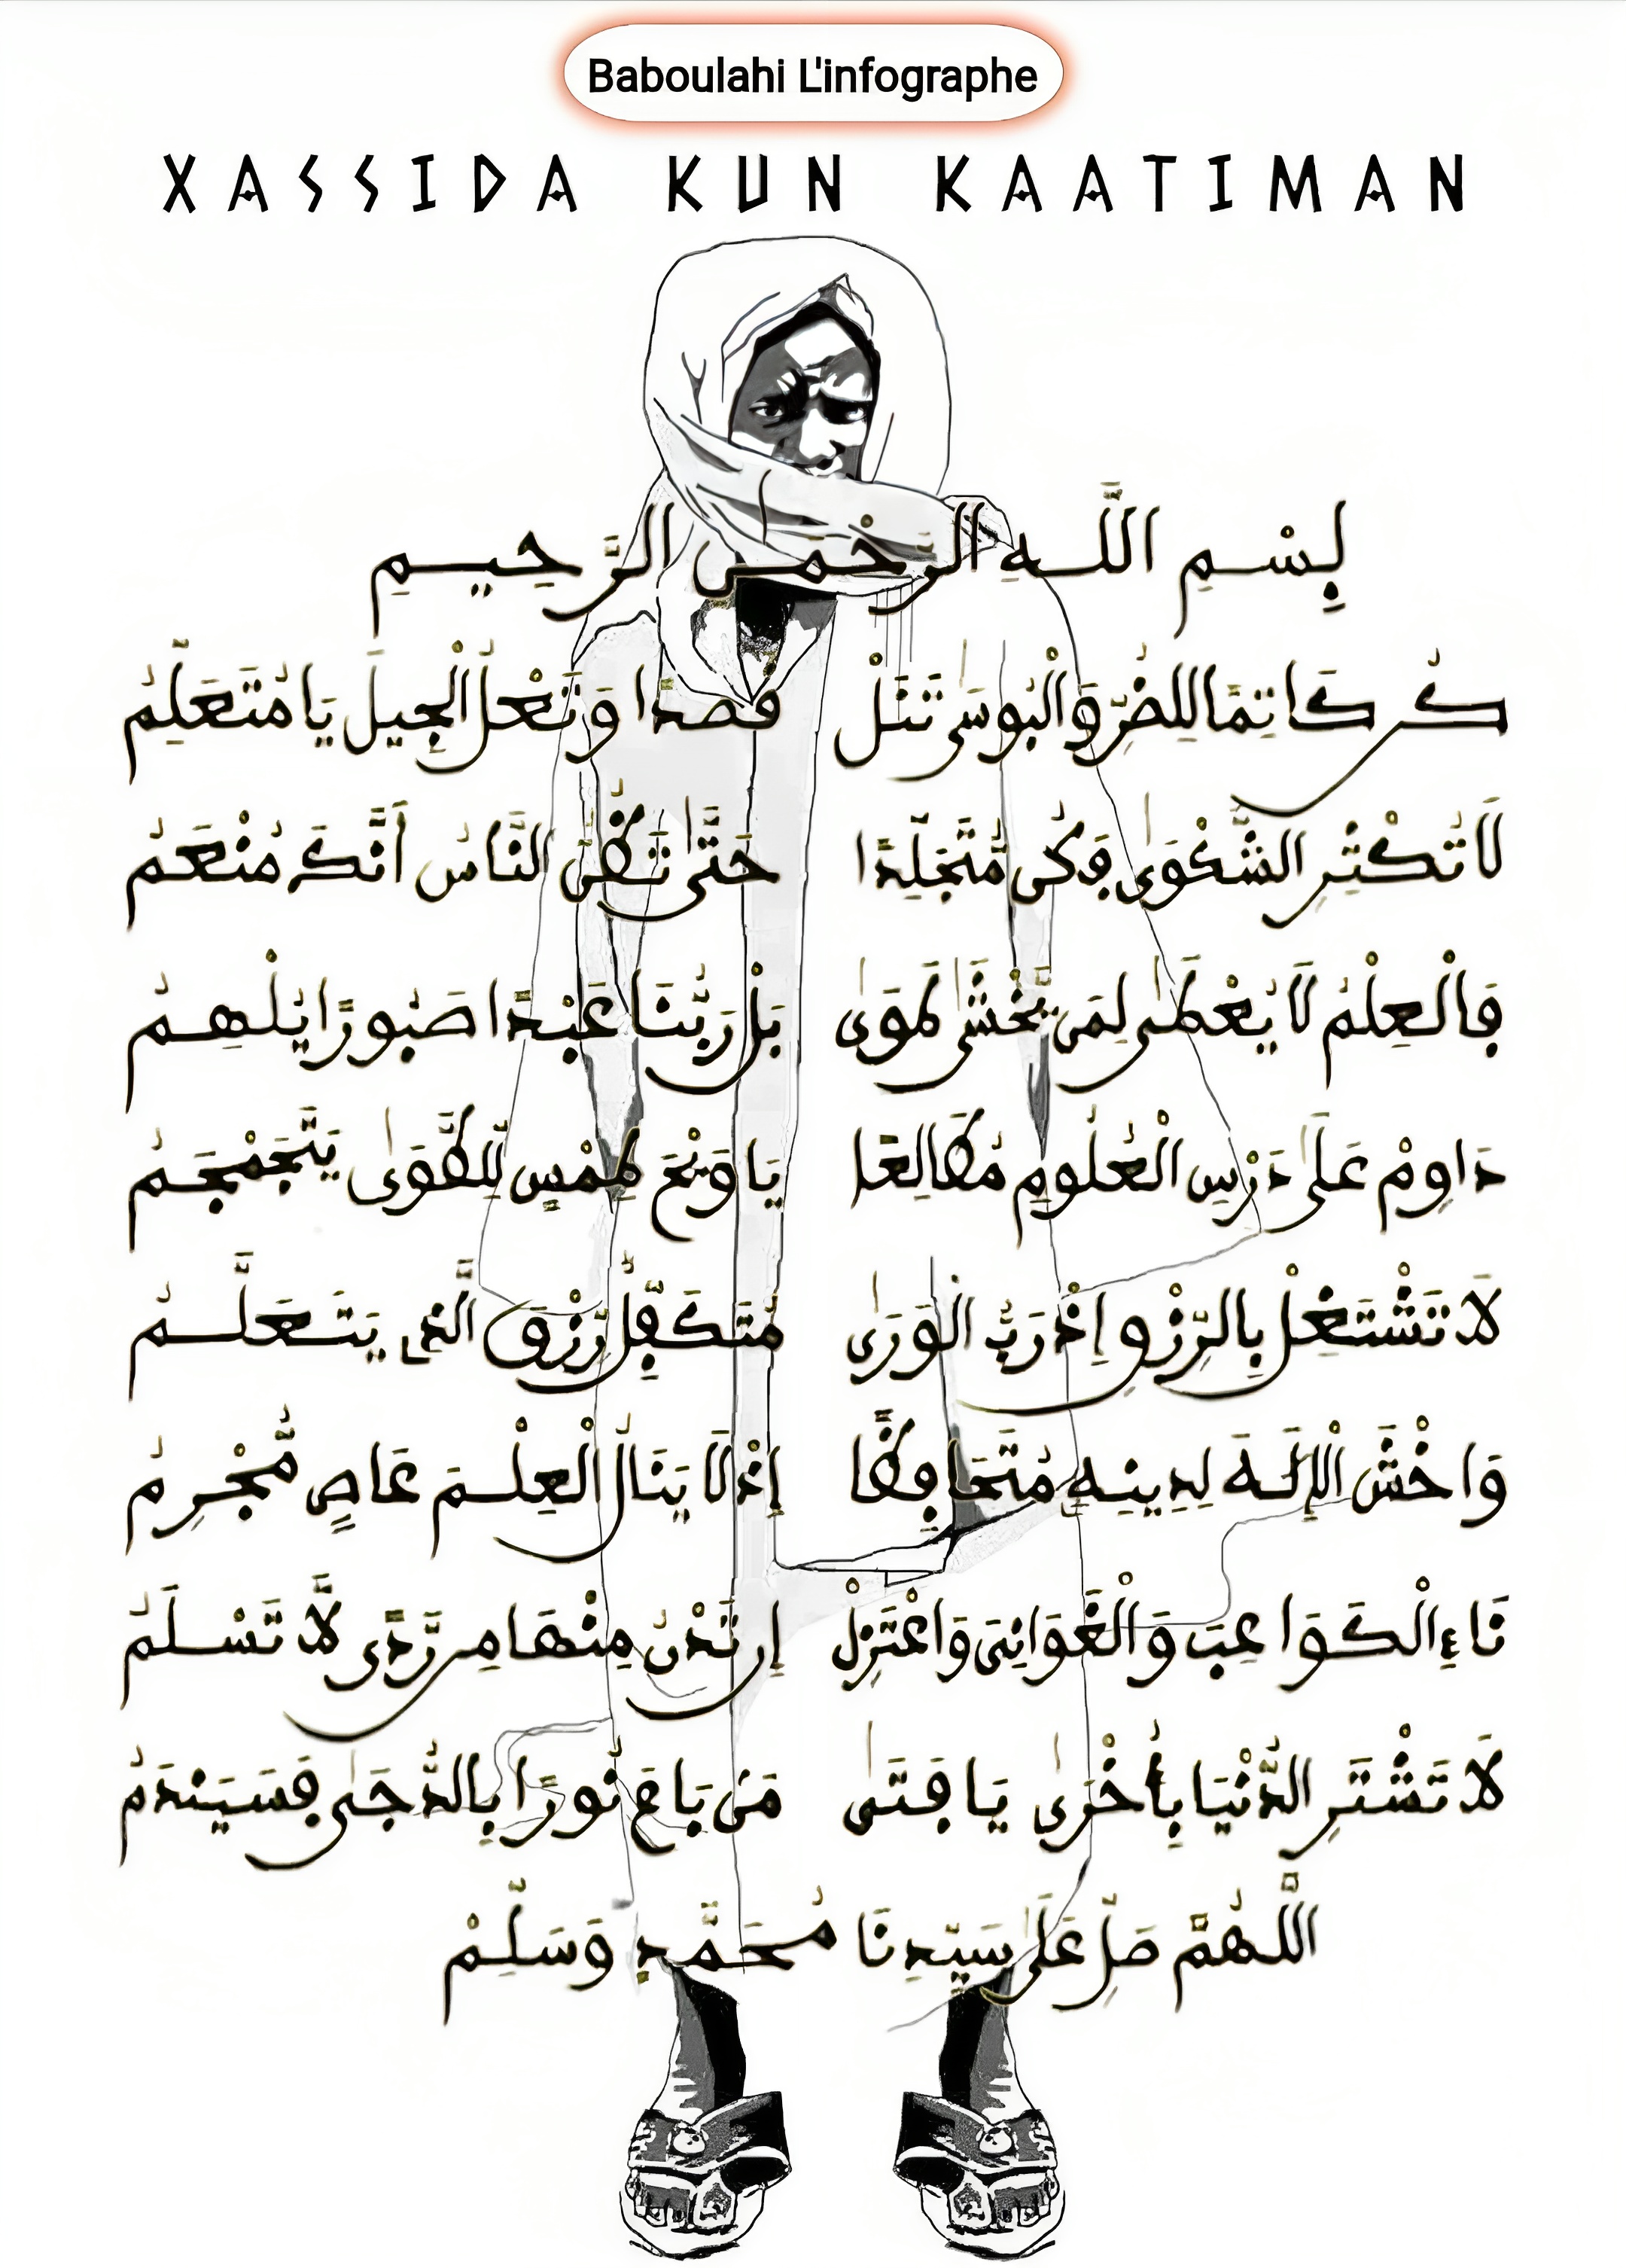 Baboulahi L'infographe
XASSIDA KUN KAATIMAN
بِسْمِ اللَّهِ الرَّحْمَنِ الرَّحِيمِ
كُن كَاتِمًا لِلضُّرِّ وَالْبُوسَى تَنَلْ قصدًا وَتَعْلُ الْجِيلَ يَا مُتَعَلِّمُ
لَا تُكْثِرِ الشَّكْوَى وَكُن مُّتَجَلِّدًا حَتَّى تَظُنَّ النَّاسُ أَنَّكَ مُنْعَمُ
فَالْعِلْمُ لَا يُعْطَى لِمَن يَّخْشَى طَوَى بَلْ رَبُّنَا عَبْدًا صَبُورًا يُلْهِمُ
دَاوِمْ عَلَى دَرْسِ الْعُلُومِ مُطَالِعًا يَا وَيْحَ طِمْسٍ لِّلطَّوَى يَتَجَمْجَمُ
لَا تَشْتَغِلْ بِالرِّزْقِ إِذْ رَبُّ الْوَرَى مُتَكَفِّلٌ رِّزْقَ الَّذِي يَتَعَلَّمُ
وَاخْشَ الْإِلَهَ لِدِينِهِ مُتَحَافِظًا إِذْ لَا يَنَالُ الْعِلْمَ عَاصٍ مُّجْرِمُ
نَاءِ الْكَوَاعِبَ وَالْغَوَانِيَ وَاعْتَزِلْ إِن تَدْنُ مِنْهَا مِن رَّدًى لَّا تَسْلَمُ
لَا تَشْتَرِ الدُّنْيَا بِأُخْرَى يَا فَتَى مَن بَاعَ نُورًا بِالدُّجَى فَسَيَنْدَمُ
اللَّهُمَّ صَلِّ عَلَى سَيِّدِنَا مُحَمَّدٍ وَسَلِّمْ